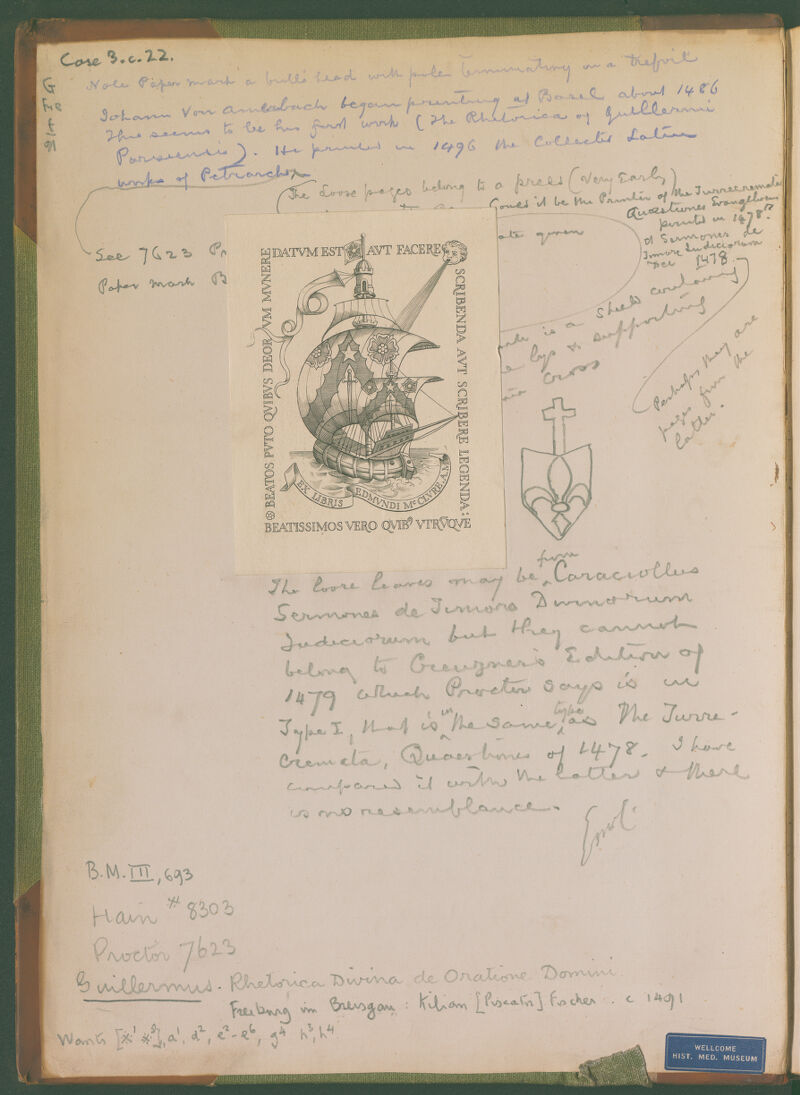 Case 3.c.22.
Note Paper mark a bull's head with pole terminating in a trefoil
Johann von Amerbach began printing at Basel about 1486
This seems to be his first work (The Rhetorica of Guillermi
Parisiensis). He printed in 1496 the Collected Latin
works of Petrarcha
(The loose pages belong to a press (Very Early)
Could it be the Printer of the Turrecremata
Quaestiones Evangeliorum
printed in 1478?
of Sermones de
Timore Judiciorum
1478.
See 7623 Pr
Paper mark B
ate given
is a shield containing
lys & supporting
cross
Perhaps they are
pages from the
latter.
DATVM EST AVT FACERE
SCRIBENDA AVT SCRIBERE LEGENDA:
BEATOS PVTO QVIBVS DEORVM MVNERE
BEATISSIMOS VERO QVIBꝰ VTRVQVE
EX LIBRIS EDMVNDI McCLVRE. A.M.
The loose leaves may be from Caracciollus
Sermones de Timore Divinorum
Judiciorum but they cannot
belong to Creuzner's Edition of
1479 which Proctor says is in
Type I, that is in the same type as the Turre-
cremata, Quaestiones of 1478. I have
compared it with the latter & there
is no resemblance.
B.M. III, 693
Hain * 8303
Proctor 7623
Guillermus. Rhetorica Divina de Oratione Domini
Freiburg im Breisgau: Kilian [Piscator] Fischer. c 1491
Wants a¹, d², e²-e⁶, g⁴ h³, h⁴
WELLCOME
HIST. MED. MUSEUM